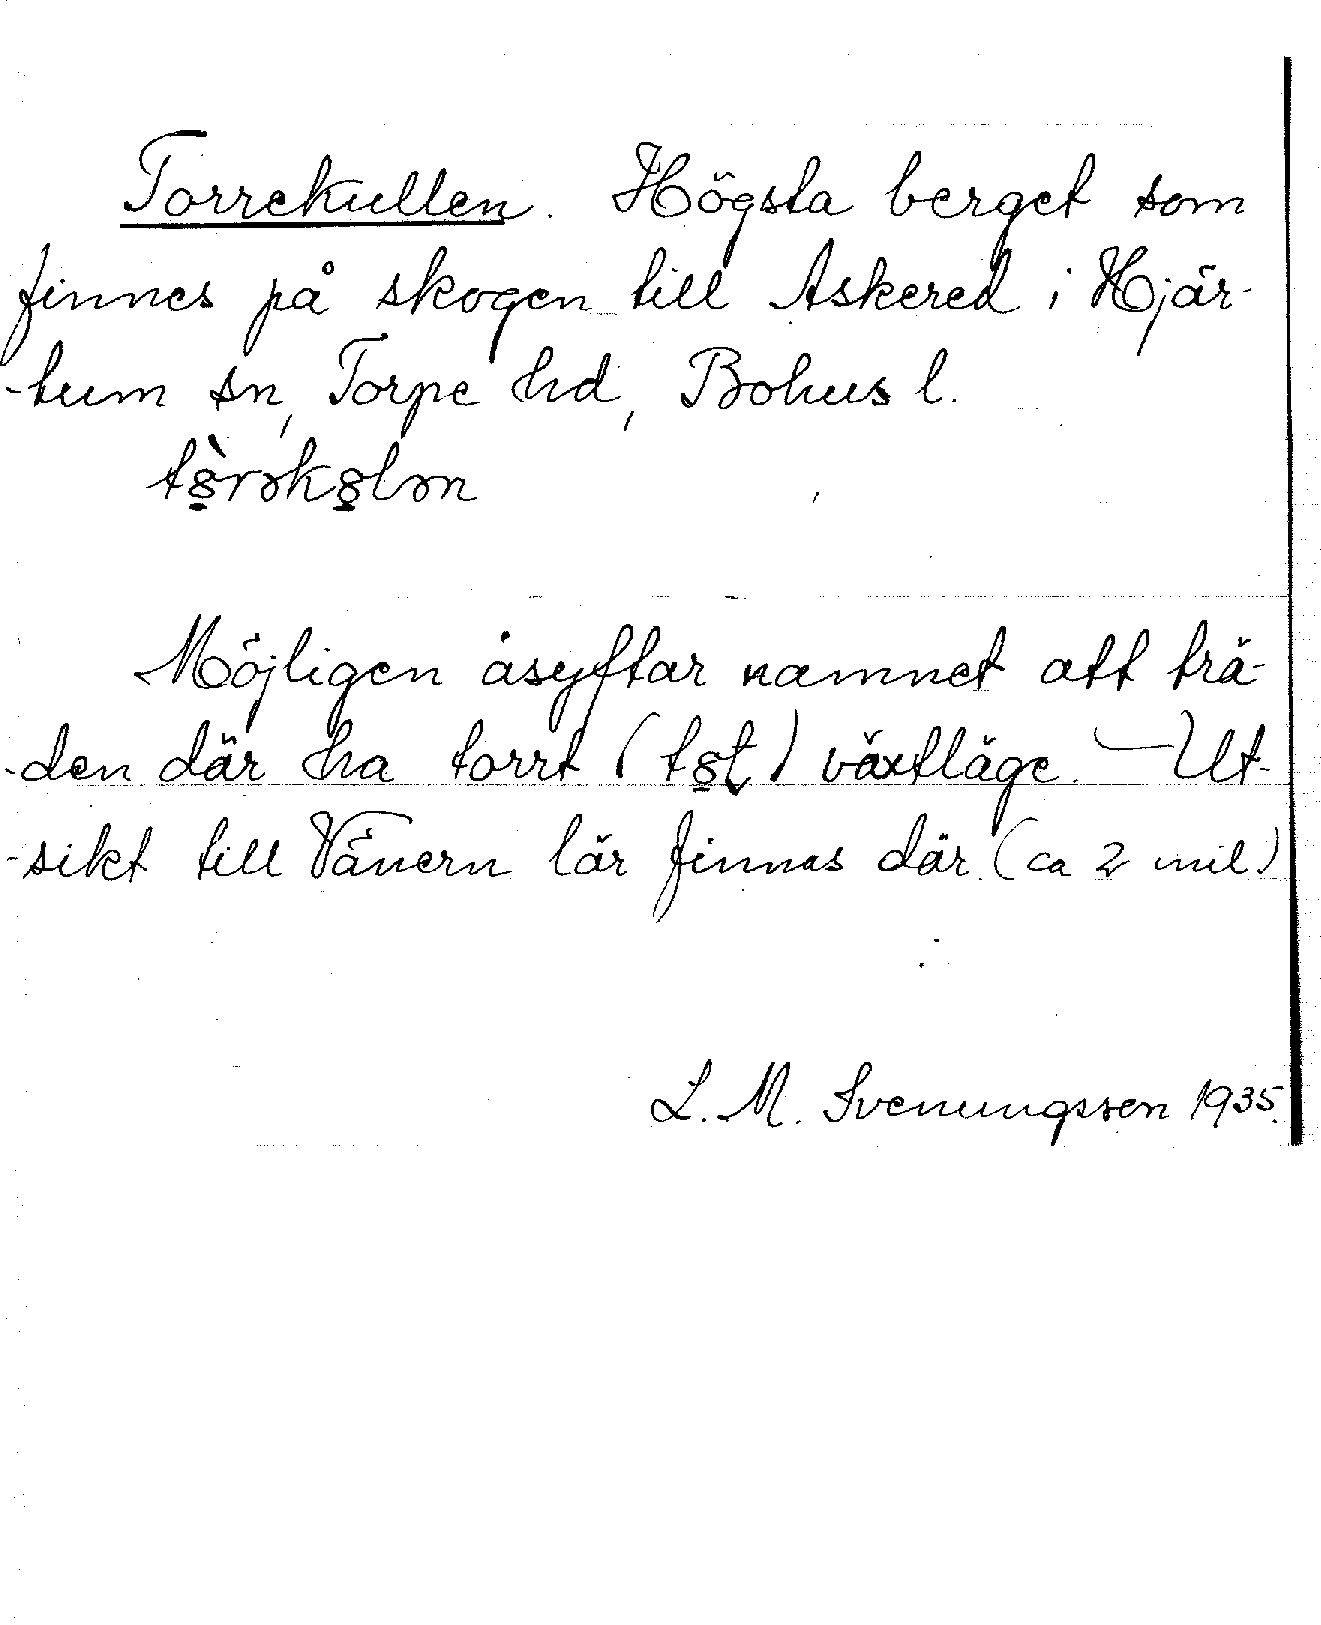 Torrekullen. Högsta berget som
finnes på skogen till Askered i Hjär-
-tum sn, Torpe hd, Bohus l.
tȣ̠̀rəkȣ̠lən
Möjligen åsyftar namnet att trä-
-den där ha torrt (tȣ̠ʈ) växtläge. – Ut-
-sikt till Vänern lär finnas där (ca 2 mil)
L. M. Svenungsson 1935.